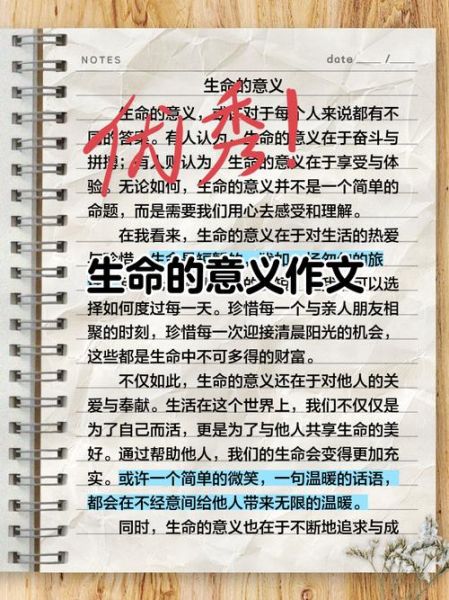 NOTES
date ____ /____
生命的意义
生命的意义，或许对于每个人来说都有不
同的答案。有人认为，生命的意义在于奋斗与
拼搏；有人则认为，生命的意义在于享受与体
验。无论如何，生命的意义并不是一个简单的
命题，而是需要我们用心去感受和理解。
优秀！
在我看来，生命的意义在于对生活的热爱
与珍惜。生命是短暂的，犹如一场匆匆的旅
生命的意义作文
可以选
择如何度过每一天。珍惜每一个与亲人朋友相
聚的时刻，珍惜每一次迎接清晨阳光的机会，
这些都是生命中不可多得的财富。
不仅如此，生命的意义还在于对他人的关
爱与奉献。生活在这个世界上，我们不仅仅是
为了自己而活，更是为了与他人共享生命的美
好。通过帮助他人，我们的生命会变得更加充
实。或许一个简单的微笑，一句温暖的话语，
都会在不经意间给他人带来无限的温暖。
同时，生命的意义也在于不断地追求与成